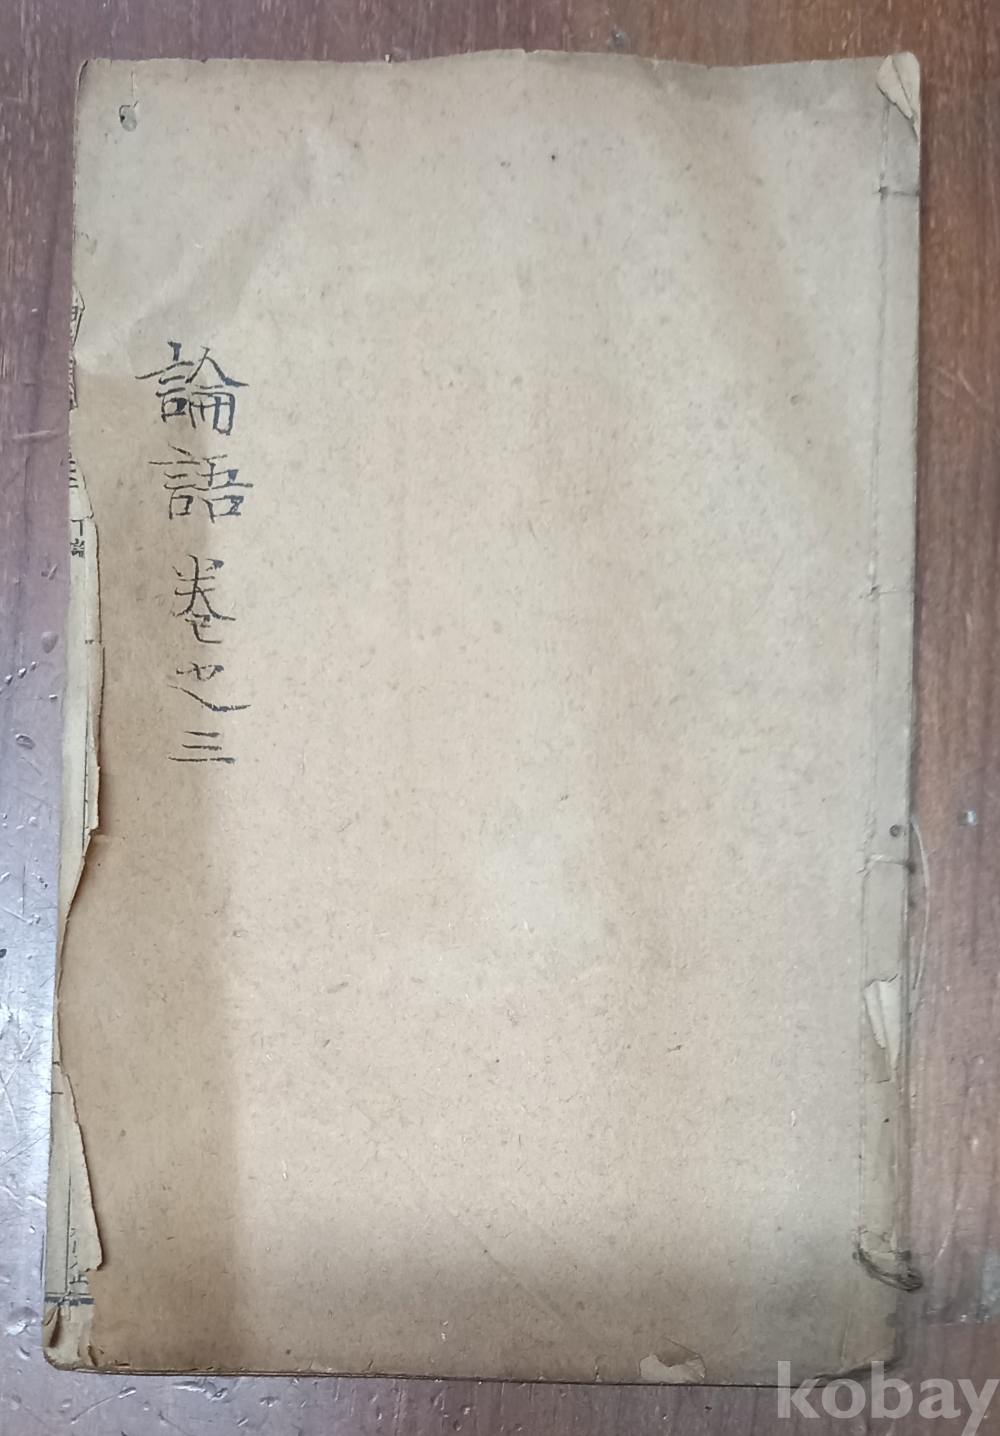 論語卷之三
kobay